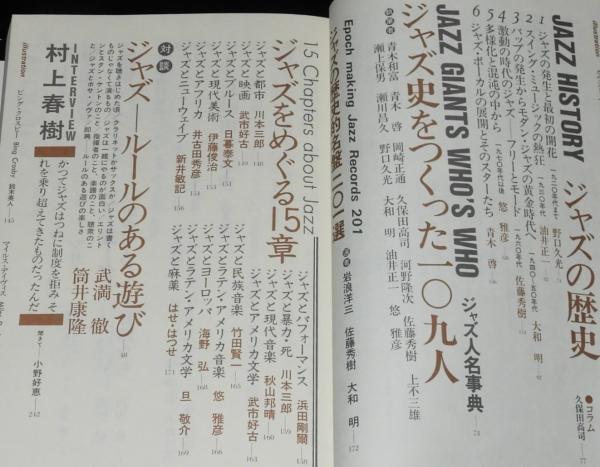 JAZZ HISTORY ジャズの歴史
1 ジャズの発生と最初の開花 一九二〇年代まで 野口久光
2 スイング・ミュージックの熱狂 一九三〇年代 油井正一
3 バップの発生からモダン・ジャズの黄金時代へ 一九四〇-五〇年代 大和 明
4 激動の時代のジャズ フリーとモード 一九六〇年代 佐藤秀樹
5 多様化と混沌の中から 一九七〇年代以後 悠 雅彦
6 ジャズ・ボーカルの展開とそのスターたち 青木 啓
●コラム
久保田高司 77
JAZZ GIANTS WHO'S WHO ジャズ人名事典 73
ジャズ史をつくった一〇九人
執筆者 青木和富 青木 啓 岡崎正通 久保田高司 河野隆次 佐藤秀樹 上不三雄
瀬上保男 瀬川昌久 野口久光 大和 明 油井正一 悠 雅彦
Epoch making Jazz Records 201
ジャズの歴史的名盤二〇一選 選者 岩浪洋三 佐藤秀樹 大和 明 172
15 Chapters about Jazz
ジャズをめぐる15章
ジャズと都市 川本三郎 148
ジャズと映画 武市好古 149
ジャズとブルース 日暮泰文 151
ジャズと現代美術 伊藤俊治 153
ジャズとアフリカ 井古田秀彦 154
ジャズとニューウェイブ 新井敏記 156
ジャズとパフォーマンス 浜田剛爾 158
ジャズと暴力・死 川本三郎 159
ジャズと現代音楽 秋山邦晴 160
ジャズとアメリカ文学 武市好古 163
ジャズと民族音楽 竹田賢一 165
ジャズとラテン・アメリカ音楽 悠 雅彦 166
ジャズとヨーロッパ 海野 弘 168
ジャズとラテン・アメリカ文学 旦 敬介 169
ジャズと麻薬 はせ・はつせ 171
対談
ジャズ——ルールのある遊び 48
武満 徹
筒井康隆
INTERVIEW
村上春樹
かつてジャズはつねに制度を拒みそ
れを乗り超えてきたものだったんだ
聞き手・小野好恵 242
illustration
ビング・クロスビー Bing Crosby 鈴木英人 145
illustration